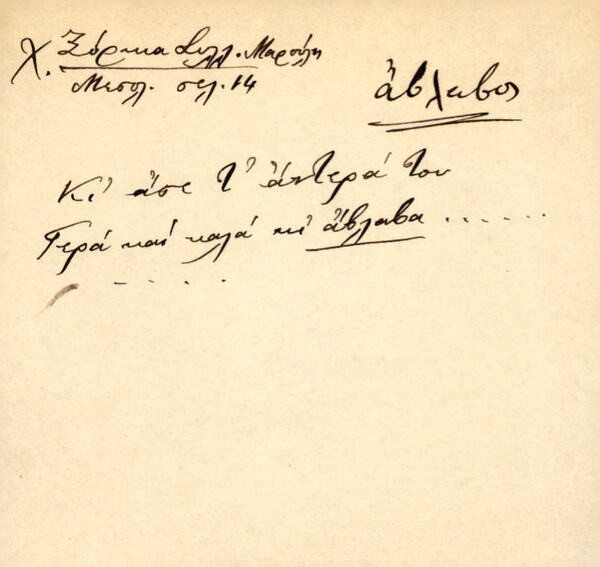 Χ. Ξόρκια Συλλ. Μαρούλη
Μεσολ. σελ. 14
άβλαβος
Κι' άσε τ' άντερά του
Γερά και καλά κι' άβλαβα ......
.....